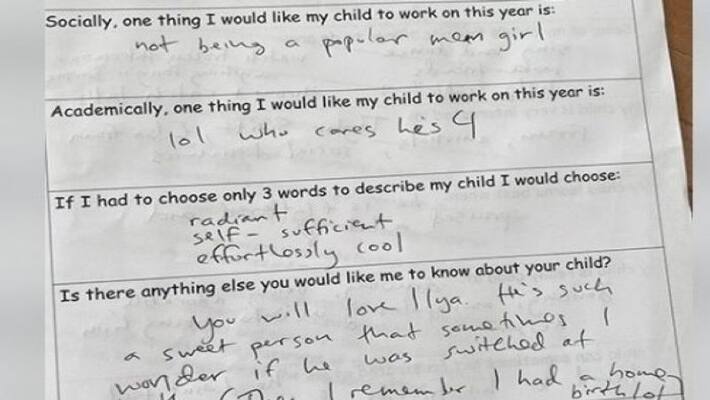 Socially, one thing I would like my child to work on this year is:
not being a popular mean girl
Academically, one thing I would like my child to work on this year is:
lol who cares he's 4
If I had to choose only 3 words to describe my child I would choose:
radiant
self-sufficient
effortlessly cool
Is there anything else you would like me to know about your child?
You will love Ilya. He's such
a sweet person that sometimes I
wonder if he was switched at
I remember I had a home
birth lol